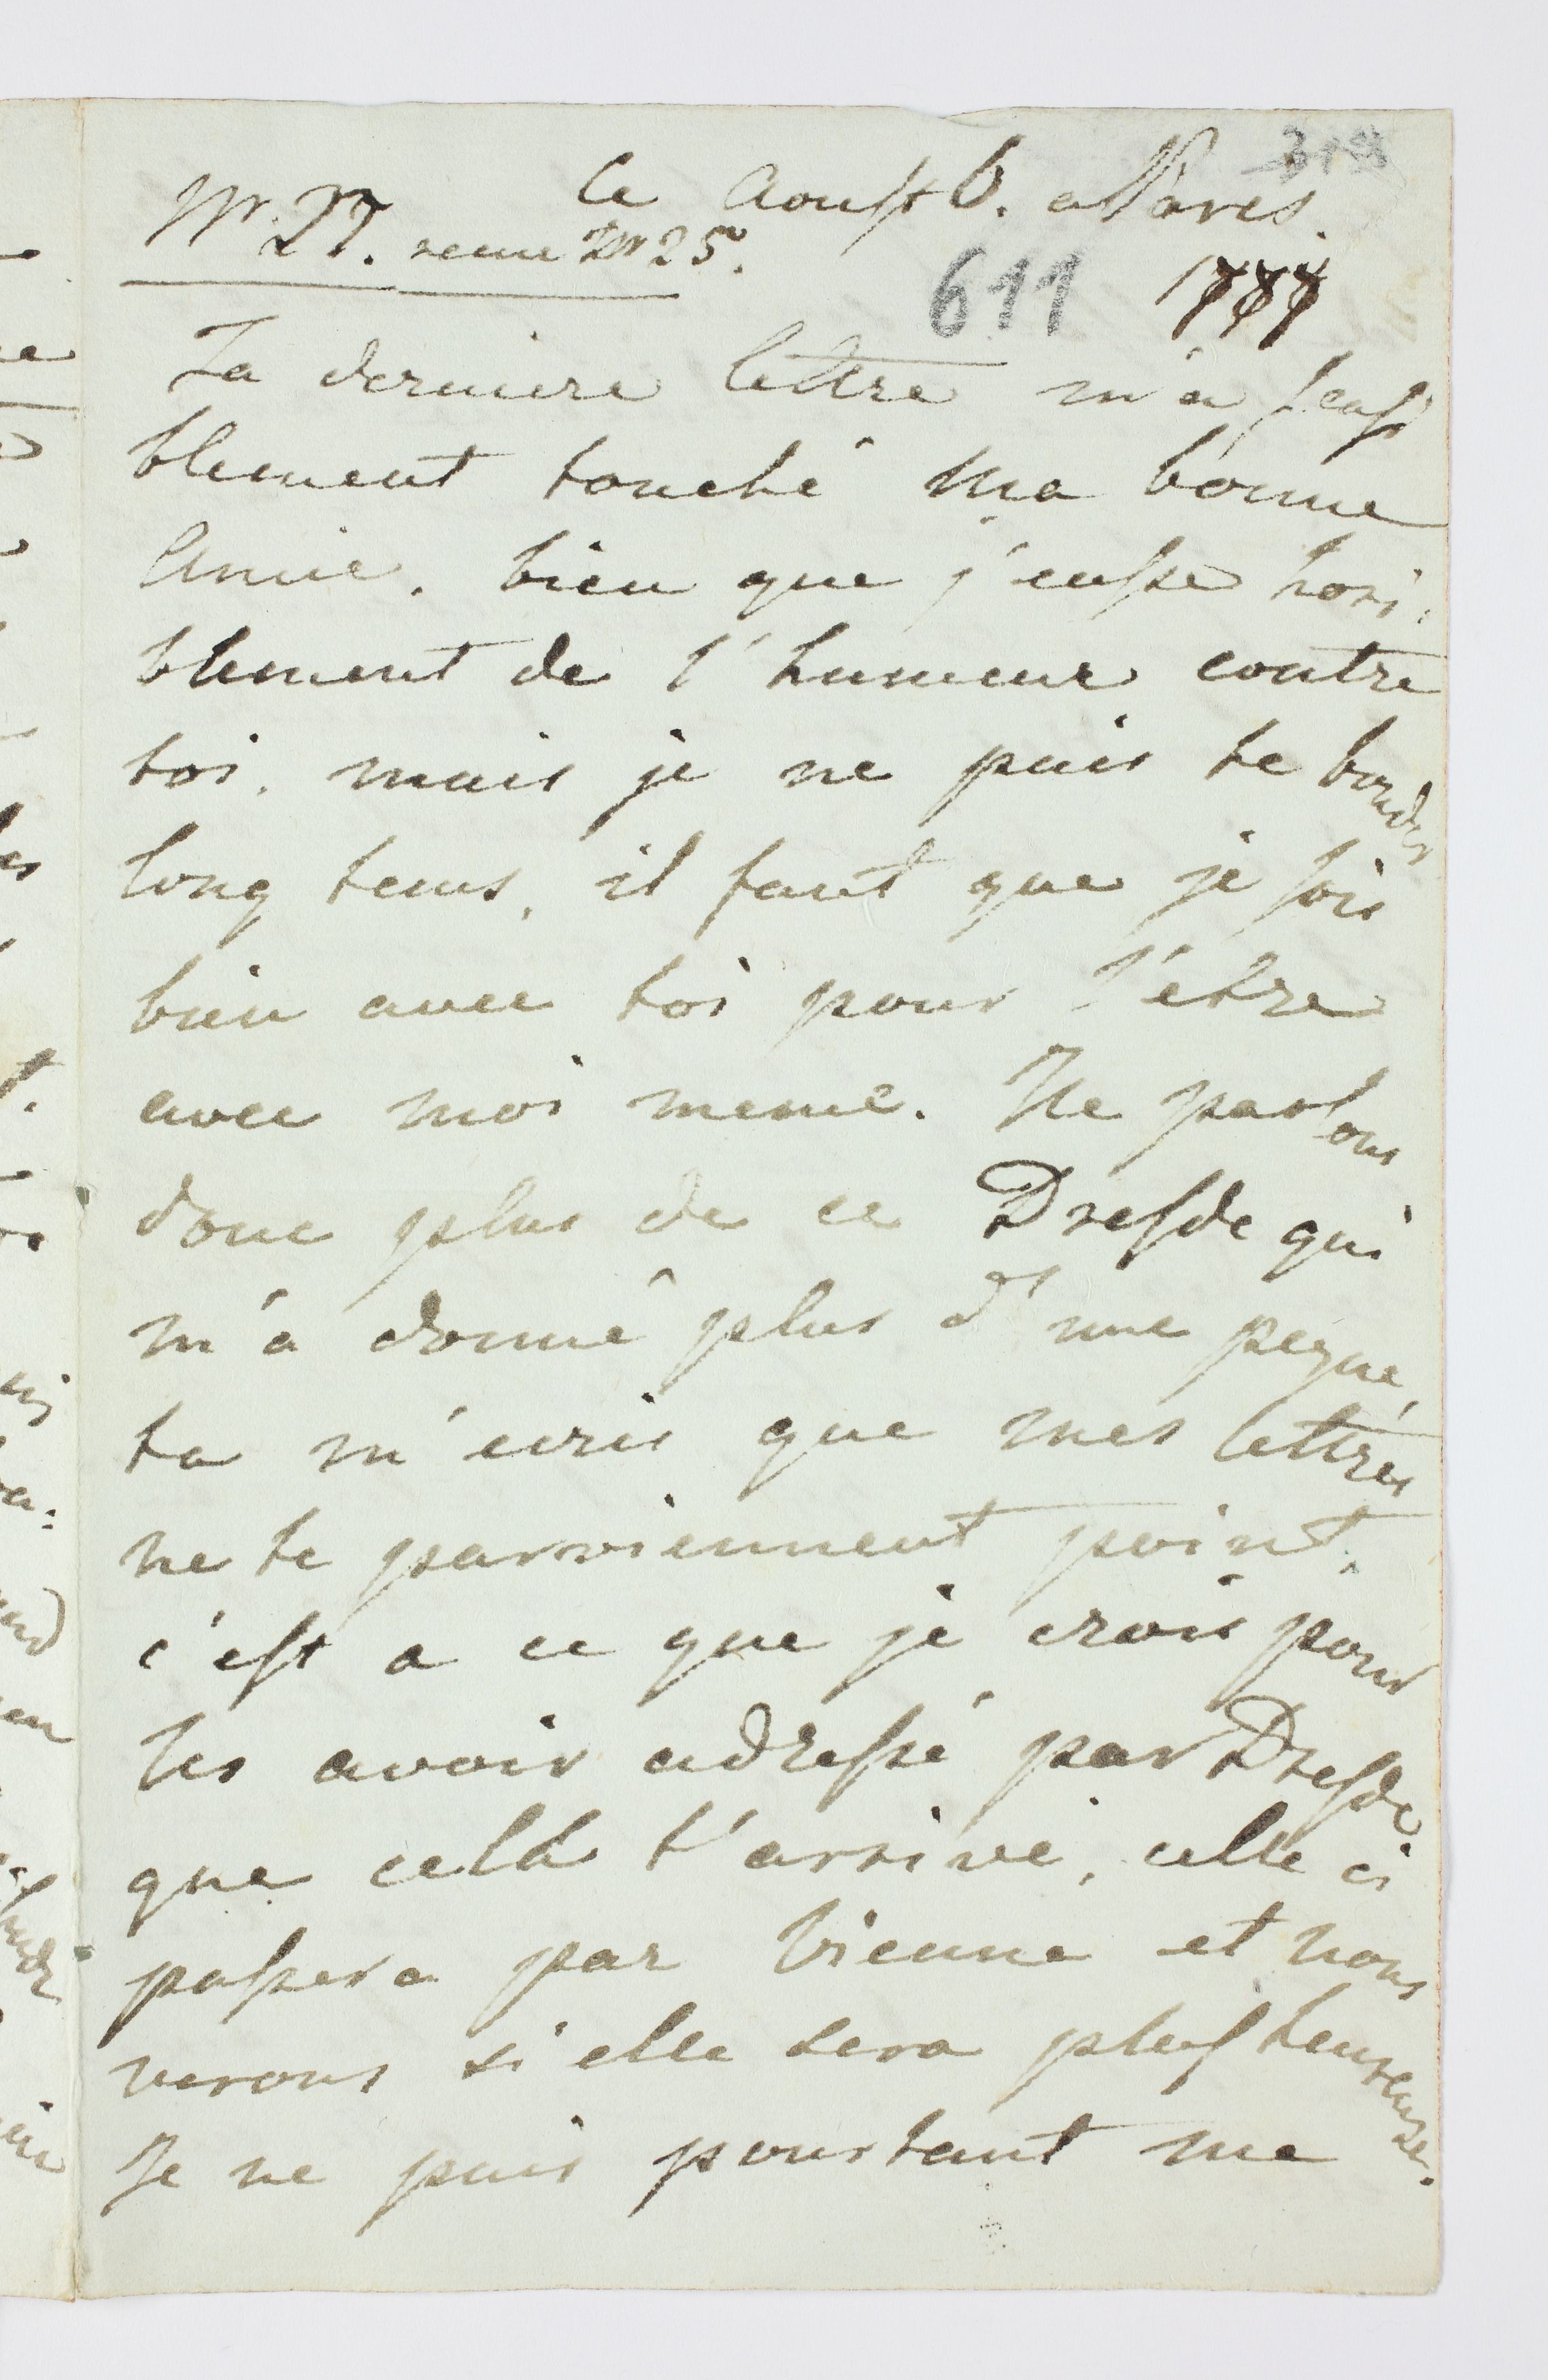 ce Aoust 6. a Paris.
Nr. 27. recue Nr 25.
611
Ta derniere lettre m'a sensi
blement touché ma bonne
Amie. bien que j'eusse hori:
blement de l'humeur contre
toi. mais je ne puis te bouder
long tems, il faut que je sois
bien avec toi pour l'être
avec moi meme. Ne parlons
donc plus de ce Dresde qui
m'a donné plus d'une peyne,
tu m'ecris que mes lettres
ne te parviennent point.
c'est a ce que je crois pour
les avoir adressé par Dresde.
que cella t'arrive, celle ci
passera par Vienne et nous
verons si elle sera plus heureuse.
Je ne puis pourtant me